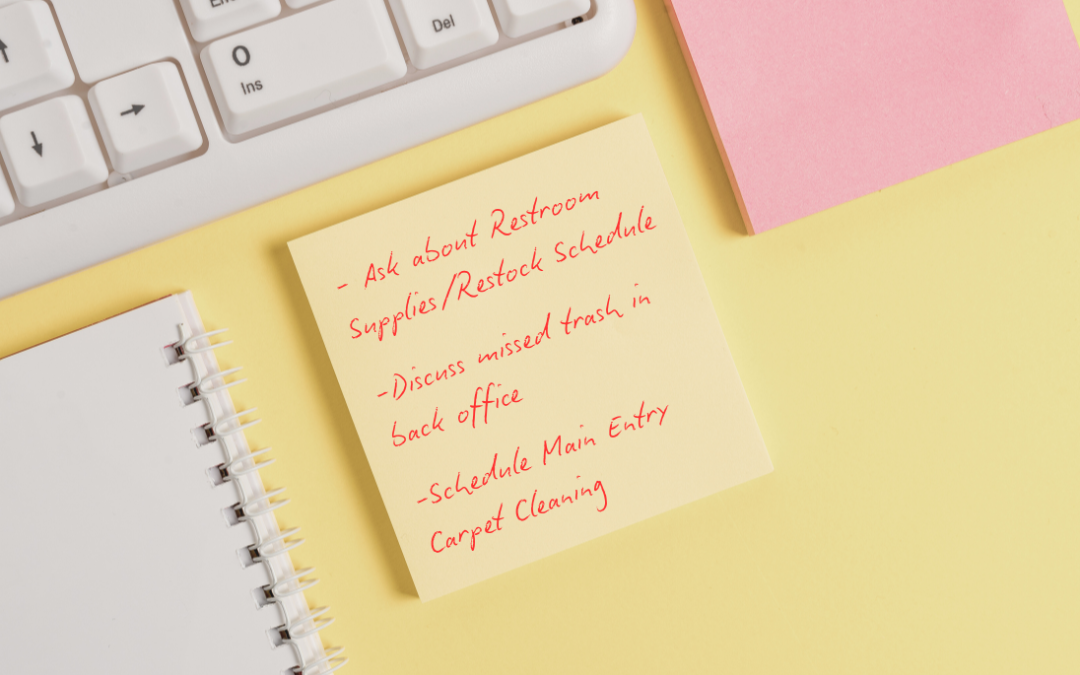 Del
0
Ins
- Ask about Restroom
Supplies/Restock Schedule
-Discuss missed trash in
back office
-Schedule Main Entry
Carpet Cleaning